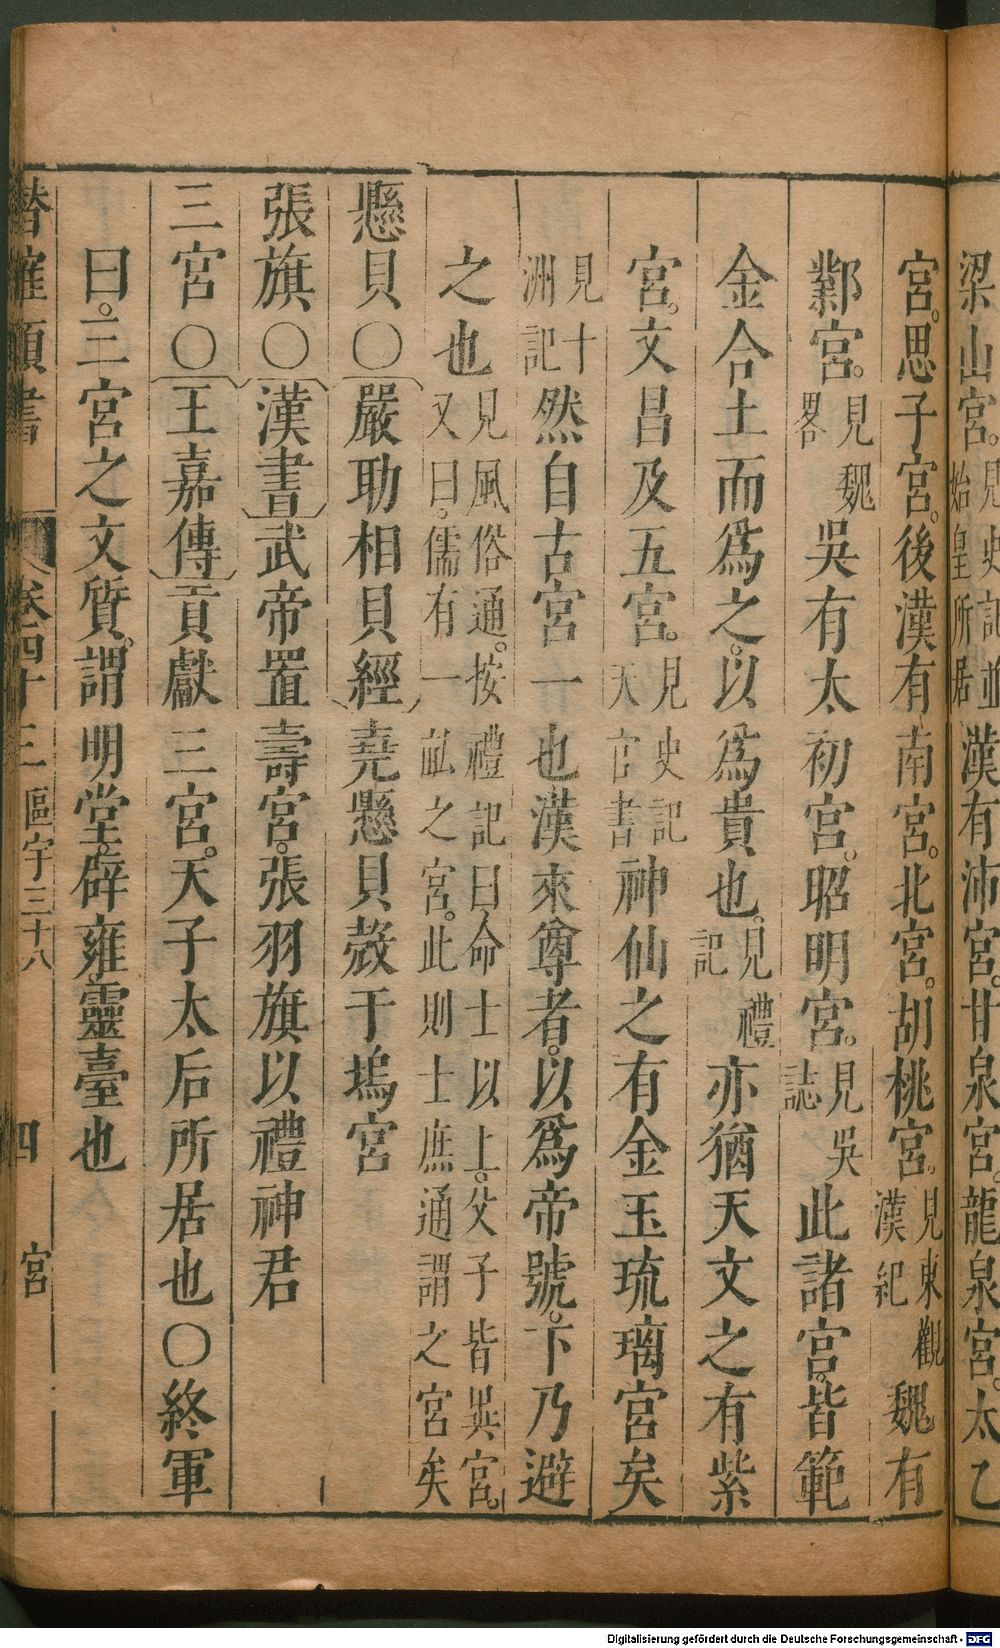 梁山宮。見史記並始皇所居漢有沛宮。甘泉宮。龍泉宮。太乙
宮。思子宮。後漢有南宮。北宮。胡桃宮。見東觀漢紀魏有
鄴宮。見魏畧吳有太初宮。昭明宮。見吳誌此諸宮。皆範
金合土而爲之。以爲貴也。見禮記亦猶天文之有紫
宮。文昌及五宮。見史記天官書神仙之有金玉琉璃宮矣
見十洲記然自古宮一也漢來尊者。以爲帝號。下乃避
之也見風俗通。按禮記曰命士以上。父子皆異宮。又曰。儒有一畝之宮。此則士庶通謂之宮矣
懸貝〇嚴助相貝經堯懸貝殼于塢宮
張旗〇漢書武帝置壽宮。張羽旗以禮神君
三宮〇王嘉傳貢獻三宮。天子太后所居也〇終軍
曰。三宮之文質。謂明堂。辟雍。靈臺也
卷四十三 區宇三十八 四 宮
Digitalisierung gefördert durch die Deutsche Forschungsgemeinschaft - DFG